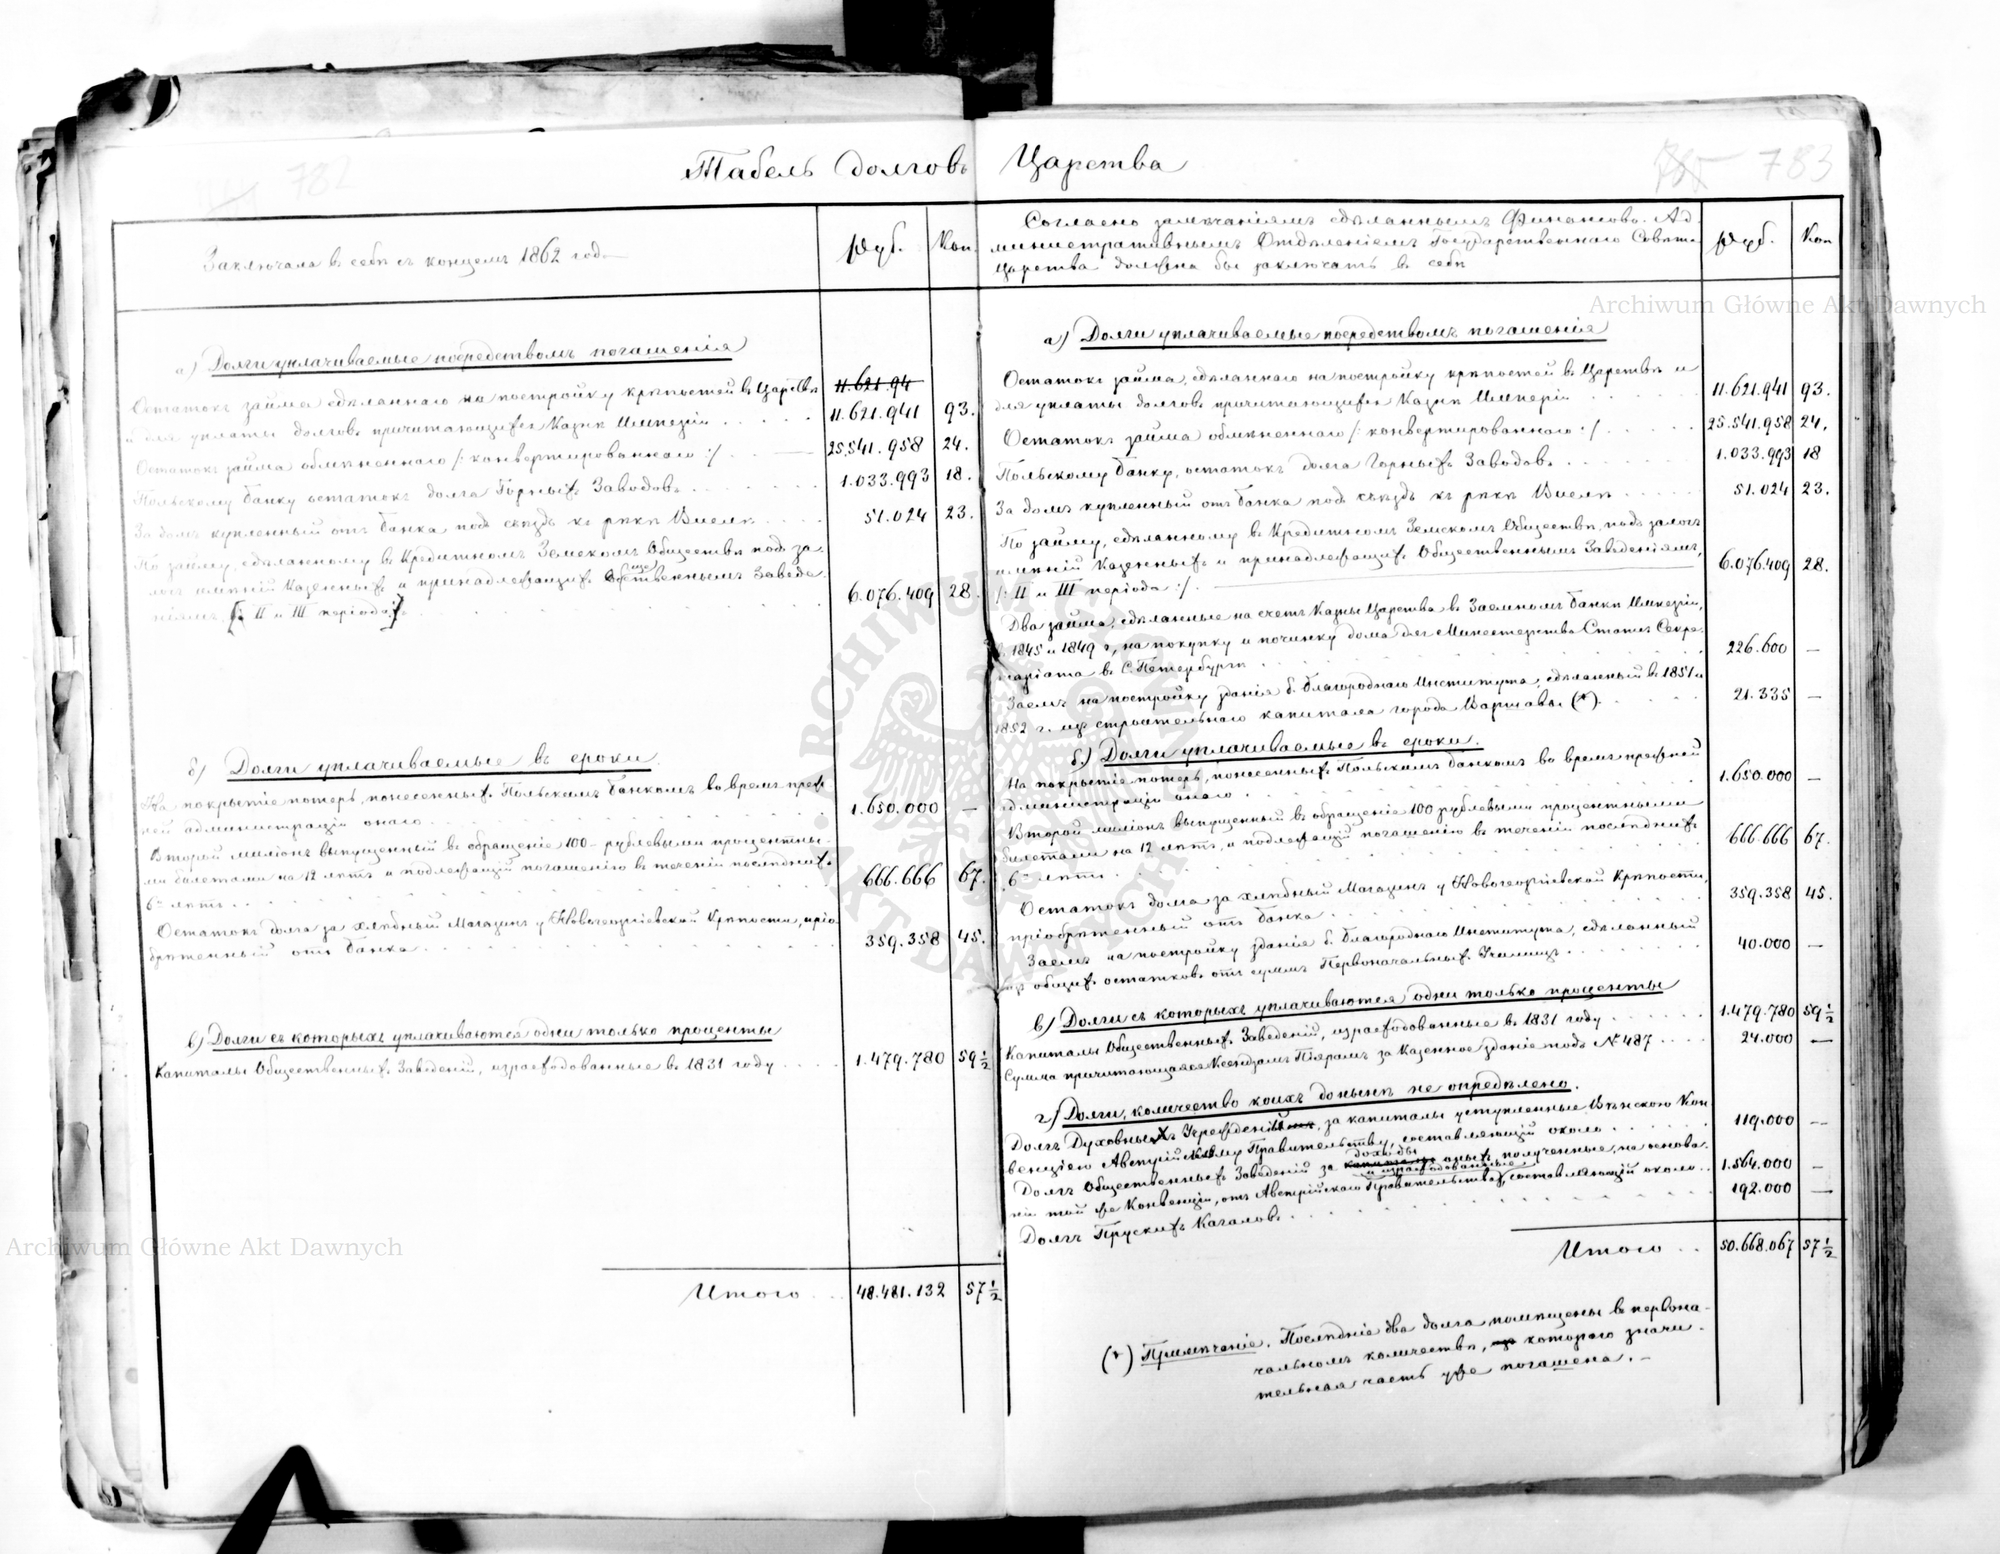 782
Табель долговъ Царства
783
Заключала въ себѣ съ концемъ 1862 года
Руб.
Коп.
а) Долги уплачиваемые посредствомъ погашенія
11.621.94
Остатокъ займа сдѣланнаго на постройку крѣпостей въ Царствѣ
и для уплаты долговъ причитающихся Казнѣ Имперіи . . . . 11.621.941 93.
Остатокъ займа обмѣненнаго /: конвертированнаго :/ . . 25.541.958 24.
Польскому банку остатокъ долга Горныхъ Заводовъ . . . . . 1.033.993 18.
За домъ купленный отъ банка подъ съѣздъ къ рѣкѣ Вислѣ . . . . 51.024 23.
По займу, сдѣланному въ Кредитномъ Земскомъ Обществѣ подъ за-
логъ имѣній Казенныхъ и принадлежащихъ Общественнымъ Заведе-
ніямъ, /: II и III періода :/ . . . . . 6.076.409 28.
б) Долги уплачиваемые въ сроки.
На покрытіе потерь, понесенныхъ Польскимъ банкомъ во время преж-
ней администраціи онаго . . . . . 1.650.000 —
Второй миліонъ выпущенный въ обращеніе 100-рублевыми процентны-
ми билетами на 12 лѣтъ и подлежащій погашенію въ теченіи послѣднихъ
6ти лѣтъ . . . . . 666.666 67.
Остатокъ долга за хлѣбный Магазинъ у Новогеоргіевской Крѣпости, пріо-
брѣтенный отъ банка . . . . . 359.358 45.
в) Долги съ которыхъ уплачиваются одни только проценты
Капиталы Общественныхъ Заведеній, израсходованные въ 1831 году . . . . 1.479.780 59 ½
Итого . . . 48.481.132 57 ½
Согласно замѣчаніямъ сдѣланнымъ Финансово-Ад-
министративнымъ Отдѣленіемъ Государственнаго Совѣта
Царства должна бы заключать въ себѣ
Руб.
Коп
а) Долги уплачиваемые посредствомъ погашенія
Остатокъ займа, сдѣланнаго на постройку крѣпостей въ Царствѣ и
для уплаты долговъ причитающихся Казнѣ Имперіи . . . . . 11.621.941 93.
Остатокъ займа обмѣненнаго /: конвертированнаго :/ . . . . . 25.541.958 24.
Польскому банку, остатокъ долга Горныхъ Заводовъ . . . . . 1.033.993 18
За домъ купленный отъ банка подъ съѣздъ къ рѣкѣ Вислѣ . . . . . 51.024 23.
По займу, сдѣланному въ Кредитномъ Земскомъ Обществѣ, подъ залогъ
имѣній Казенныхъ и принадлежащихъ Общественнымъ Заведеніямъ,
/: II и III періода :/ . 6.076.409 28.
Два займа, сдѣланные на счетъ Казны Царства въ Заемномъ банкѣ Имперіи,
въ 1845 и 1849 г., на покупку и починку дома для Министерства Статсъ Секре-
таріата въ С. Петербургѣ . . . . . 226.600 —
Заемъ на постройку зданія б. Благороднаго Института, сдѣланный въ 1851 и
1852 г. изъ строительнаго капитала города Варшавы (*) . . . . 21.335 —
б.) Долги уплачиваемые въ сроки.
На покрытіе потерь, понесенныхъ Польскимъ банкомъ во время прежней
администраціи онаго . . . . . 1.650.000 —
Второй миліонъ выпущенный въ обращеніе 100 рублевыми процентными
билетами на 12 лѣтъ, и подлежащій погашенію въ теченіи послѣднихъ
6ти лѣтъ . . . . . 666.666 67.
Остатокъ долга за хлѣбный Магазинъ у Новогеоргіевской Крѣпости,
пріобрѣтенный отъ банка . . . . . 359.358 45.
Заемъ на постройку зданія б. Благороднаго Института, сдѣланный
изъ общихъ остатковъ отъ суммъ Первоначальныхъ Училищъ . . . . . 40.000 —
в) Долги съ которыхъ уплачиваются одни только проценты
Капиталы Общественныхъ Заведеній, израсходованные въ 1831 году . . . . . 1.479.780 59 ½
Сумма причитающаяся Ксендзамъ Піярамъ за Казенное зданіе подъ № 487 . . . . 24.000 —
г) Долги, количество коихъ донынѣ не опредѣлено.
Долгъ Духовныхъ Учрежденій, за капиталы уступленные Вѣнскою Кон-
венціею Австрійскому Правительству, составляющій около . . . . . 119.000 —
доходы
Долгъ Общественныхъ Заведеній за оныхъ, полученные, на основа-
и израсходованные
ніи той же Конвенціи, отъ Австрійскаго Правительства, составляющій около . . 1.564.000 —
Долгъ Прускихъ Кагаловъ . . . . . 192.000 —
Итого . . 50.668.067 57 ½
(*) Примѣчаніе. Послѣдніе два долга помѣщены въ первона-
чальномъ количествѣ, котораго значи-
тельная часть уже погашена. —
Archiwum Główne Akt Dawnych
Archiwum Główne Akt Dawnych
ARCHIWUM GŁÓWNE
AKT DAWNYCH